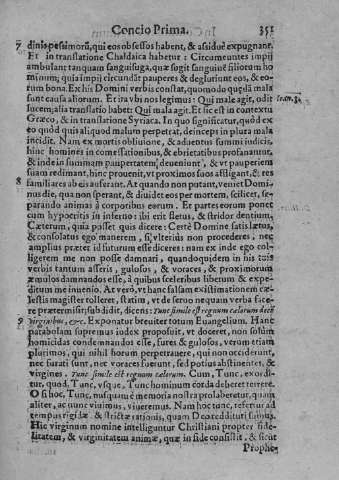 Concio Prima. 351
7 dinis pessimorũ, qui eos obsessos habent, & assiduè expugnant.
Et in translatione Chaldaica habetur: Circumeuntes impij
ambulant tanquam sanguisuga, quæ sugit sanguinẽ filiorum ho
minum; quia impij circundãt pauperes & deglutiunt eos, & eo-
rum bona. Ex his Domini verbis constat, quomodo quædã mala
sunt causa aliorum. Et ita vbi nos legimus: Qui male agit, odit
lucem; alia translatio habet: Qui mala agit. Et sic est in contextu
Græco, & in translatione Syriaca. In quo significatur, quòd ex
eo quòd quis aliquod malum perpetrat, deinceps in plura mala
incidit. Nam ex mortis obliuione, & aduentus summi iudicis,
hinc homines in comessationibus, & ebrietatibus profanantur,
& inde in summam paupertatem deueniunt, & vt pauperiem
suam redimant, hinc prouenit, vt proximos suos affligant, & res
8 familiares ab eis auferant. At quando non putant, veniet Domi-
nus die, qua non sperant, & diuidet eos per mortem, scilicet, se-
parando animas à corporibus eorum. Et partes eorum ponet
cum hypocritis in inferno: ibi erit fletus, & stridor dentium.
Cæterum, quia posset quis dicere: Certè Domine satis lætus,
& consolatus ego manerem, si vlterius non procederes, nec
amplius præter id futurum esse diceres: nam ex inde ego col-
ligerem me non posse damnari, quandoquidem in his tuis
verbis tantum asseris, gulosos, & voraces, & proximorum
æmulos damnandos esse, à quibus sceleribus liberum & expe-
ditum me inuenio. At verò, vt hanc falsam existimationem cæ-
lestis magister tolleret, statim, vt de seruo nequam verba face-
re prætermisit; subdidit, dicens: Tunc simile est regnum cælorum decẽ
9 virginibus, &c. Exponatur breuiter totum Euangelium. Hanc
parabolam supremus iudex proposuit, vt doceret, non solùm
homicidas condemnandos esse, fures & gulosos, verum etiam
plurimos, qui nihil horum perpetrauere, qui non occiderunt,
nec furati sunt, nec voraces fuerunt, sed potius abstinentes, &
virgines. Tunc simile est regnum cælorum. Cum, Tunc, exordi-
tur, quod, Tunc, vsque, Tunc hominum corda deberet terrere.
O si hoc, Tunc, nusquam è memoria nostra prolaberetur, quam
aliter, ac nunc viuimus, viueremus. Nam hoc tunc, refertur ad
tempus rigidæ & strictæ rationis, quam Deo reddituri sumus.
Hic virginum nomine intelliguntur Christiani propter fide-
litatem, & virginitatem animæ, quæ in fide consistit, & sicut
Prophe-